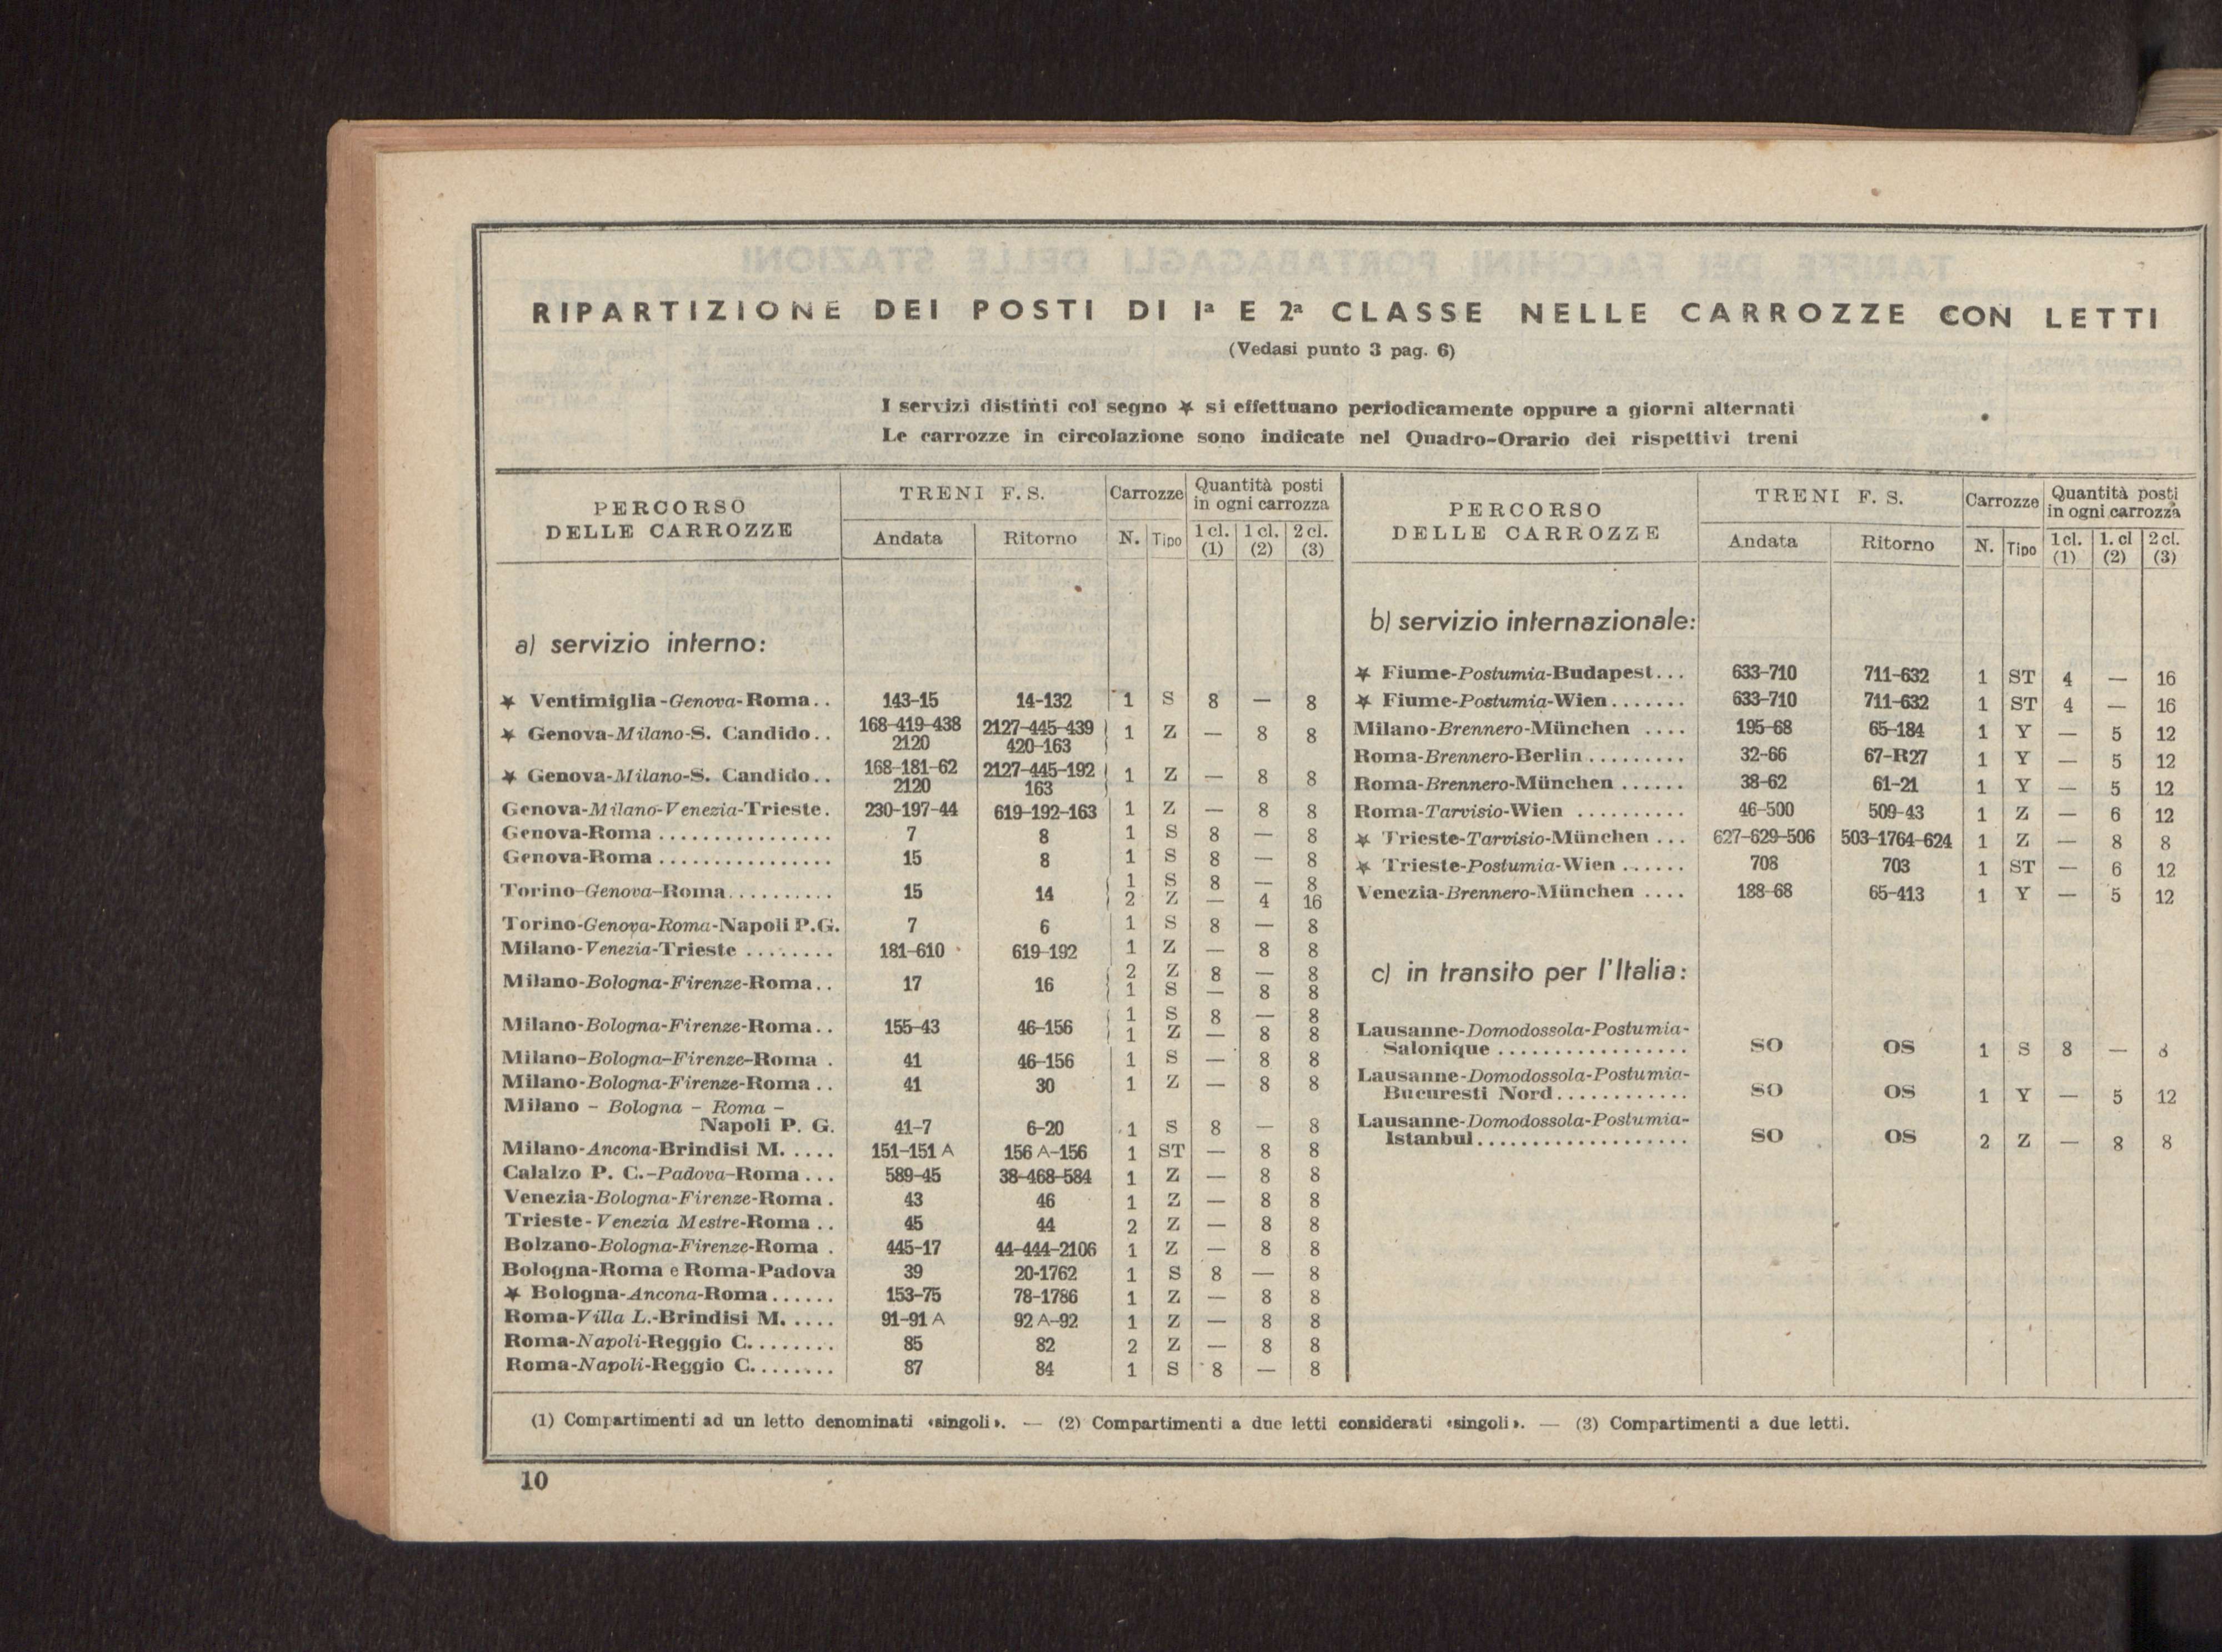 RIPARTIZIONE DEI POSTI DI Iª E 2ª CLASSE NELLE CARROZZE CON LETTI
(Vedasi punto 3 pag. 6)
I servizi distinti col segno ★ si effettuano periodicamente oppure a giorni alternati
Le carrozze in circolazione sono indicate nel Quadro-Orario dei rispettivi treni
PERCORSO DELLE CARROZZE | TRENI F.S. | Carrozze | Quantità posti in ogni carrozza
Andata | Ritorno | N. | Tipo | 1 cl. (1) | 1 cl. (2) | 2 cl. (3)
a) servizio interno:
★ Ventimiglia-Genova-Roma.. 143-15 14-132 1 S 8 — 8
★ Genova-Milano-S. Candido.. 168-419-438 2120 2127-445-439 420-163 1 Z — 8 8
★ Genova-Milano-S. Candido.. 168-181-62 2120 2127-445-192 163 1 Z — 8 8
Genova-Milano-Venezia-Trieste. 230-197-44 619-192-163 1 Z — 8 8
Genova-Roma ................ 7 8 1 S 8 — 8
Genova-Roma ................ 15 8 1 S 8 — 8
Torino-Genova-Roma.......... 15 14 1 S 8 — 8
2 Z — 4 16
Torino-Genova-Roma-Napoli P.G. 7 6 1 S 8 — 8
Milano-Venezia-Trieste ........ 181-610 619-192 1 Z — 8 8
Milano-Bologna-Firenze-Roma.. 17 16 2 Z 8 — 8
1 S — 8 8
Milano-Bologna-Firenze-Roma.. 155-43 46-156 1 S 8 — 8
1 Z — 8 8
Milano-Bologna-Firenze-Roma . 41 46-156 1 S — 8 8
Milano-Bologna-Firenze-Roma.. 41 30 1 Z — 8 8
Milano - Bologna - Roma -
Napoli P. G. 41-7 6-20 1 S 8 — 8
Milano-Ancona-Brindisi M. ..... 151-151 A 156 A-156 1 ST — 8 8
Calalzo P. C.-Padova-Roma ... 589-45 38-468-584 1 Z — 8 8
Venezia-Bologna-Firenze-Roma . 43 46 1 Z — 8 8
Trieste-Venezia Mestre-Roma .. 45 44 2 Z — 8 8
Bolzano-Bologna-Firenze-Roma . 445-17 44-444-2106 1 Z — 8 8
Bologna-Roma e Roma-Padova 39 20-1762 1 S 8 — 8
★ Bologna-Ancona-Roma...... 153-75 78-1786 1 Z — 8 8
Roma-Villa L.-Brindisi M. ..... 91-91 A 92 A-92 1 Z — 8 8
Roma-Napoli-Reggio C........ 85 82 2 Z — 8 8
Roma-Napoli-Reggio C........ 87 84 1 S 8 — 8
PERCORSO DELLE CARROZZE | TRENI F. S. | Carrozze | Quantità posti in ogni carrozza
Andata | Ritorno | N. | Tipo | 1 cl. (1) | 1. cl (2) | 2 cl. (3)
b) servizio internazionale:
★ Fiume-Postumia-Budapest... 633-710 711-632 1 ST 4 — 16
★ Fiume-Postumia-Wien....... 633-710 711-632 1 ST 4 — 16
Milano-Brennero-München .... 195-68 65-184 1 Y — 5 12
Roma-Brennero-Berlin ......... 32-66 67-R27 1 Y — 5 12
Roma-Brennero-München ...... 38-62 61-21 1 Y — 5 12
Roma-Tarvisio-Wien .......... 46-500 509-43 1 Z — 6 12
★ Trieste-Tarvisio-München ... 627-629-506 503-1764-624 1 Z — 8 8
★ Trieste-Postumia-Wien ...... 708 703 1 ST — 6 12
Venezia-Brennero-München .... 188-68 65-413 1 Y — 5 12
c) in transito per l'Italia:
Lausanne-Domodossola-Postumia-
Salonique ................. SO OS 1 S 8 — 8
Lausanne-Domodossola-Postumia-
Bucuresti Nord............ SO OS 1 Y — 5 12
Lausanne-Domodossola-Postumia-
Istanbul................... SO OS 2 Z — 8 8
(1) Compartimenti ad un letto denominati «singoli». — (2) Compartimenti a due letti considerati «singoli». — (3) Compartimenti a due letti.
10